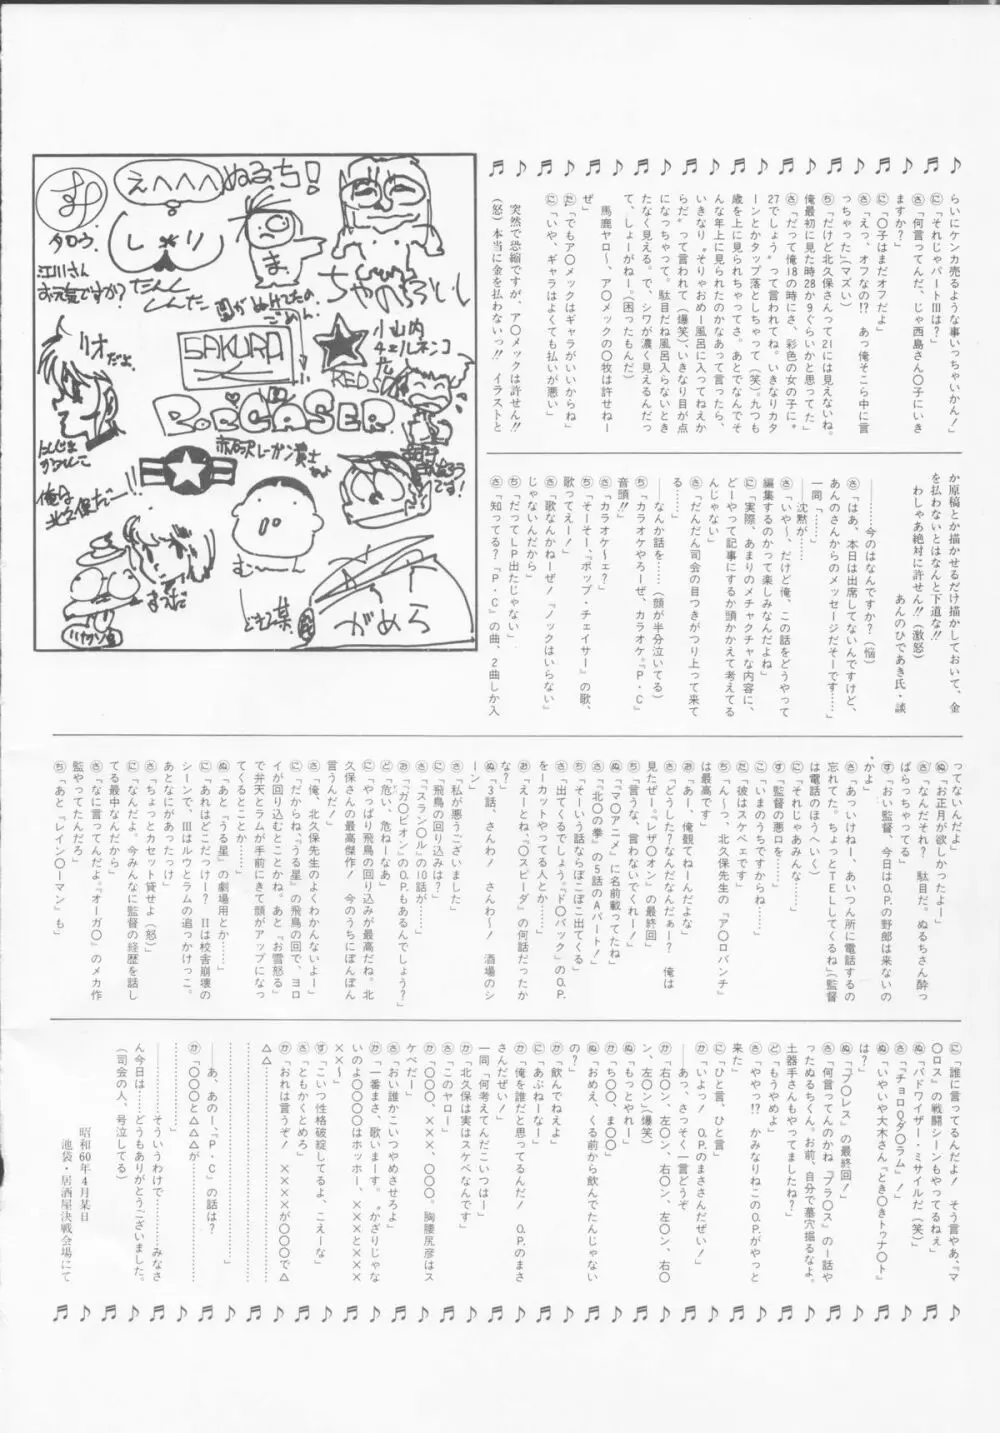 らいにケンカ売るような事いっちゃいかん!」
に「それじゃパートⅢは?」
さ「何言ってんだ、じゃ西島さん〇子にいき
ますか?」
に「〇子はまだオフだよ」
さ「えっ、オフなの!?　あっ俺そこら中に言
っちゃった」(マズい)
ち「だけど北久保さんって21には見えないね。
俺最初に見た時28か9くらいかと思ってた」
さ「だって俺18の時にさ、彩色の女の子に。
27でしょう〟って言われてね。いきなりカタ
ーンとかタップ落としちゃって(笑)。九つも
歳を上に見られちゃってさ。あとでなんでそ
んな年上に見られたのかなあって言ったら、
いきなり〝そりゃおめー風呂に入ってねえか
らだ〟って言われて(爆笑)、いきなり目が点
になっちゃって。駄目だね風呂入らないとき
たなく見える。で、シワが濃く見えるんだっ
て、しょーがねー。(困ったもんだ)
馬鹿ヤロ〜、ア〇メックの〇牧は許せねー
ぜ
た「でもア〇メックはギャラがいいからね」
に「いや、ギャラはよくても払いが悪い」
突然で恐縮ですが、ア〇メックは許せん!!
(怒)本当に金を払わないっ!!　イラストと
か原稿とか描かせるだけ描かしておいて、金
を払わないとはなんと下道な!!
わしゃあ絶対に許せん!!(激怒)
あんのひであき氏・談
———今のはなんですか?(悩)
さ「はあ、本日は出席してないんですけど、
あんのさんからのメッセージだそーです……」
一同「……」
———沈黙が……
さ「いや〜、だけど俺、この話をどうやって
編集するのかって楽しみなんだよね」
に「実際、あまりのメチャクチャな内容に、
どーやって記事にするか頭かかえて考えてる
んじゃない」
さ「だんだん司会の目つきがつり上って来て
る……」
———なんか話を……(顔が半分泣いてる)
ち「カラオケやろーぜ、カラオケ。『P・C』
音頭!!」
さ「カラオケ〜ェ?」
ち「そーそー、『ポップ・チェイサー』の歌、
歌ってえー!」
さ「歌なんかねーぜ!『ノックはいらない』
じゃないんだから」
ち「だってLP出たじゃない」
さ「知ってる?『P・C』の曲、2曲しか入
ってないんだよ」
ぬ「お正月が欲しかったよー」
さ「なんだそれ?　駄目だ。ぬるちさん酔っ
ばらっちゃってる」
す「おい監督、今日はO.P.の野郎は来ないの
かよ」
さ「あっいけねー、あいつん所に電話するの
忘れてた。ちょっとTELしてくるね」(監督
は電話のほうへいく)
に「それじゃあみんな……」
す「監督の悪口を……」
こ「いまのうちですからね……」
た「彼はスケベェです」
ち「ん〜っ、北久保先生の『ア〇ロバンチ』
は最高です」
お「あー、俺観てねーんだよな」
さ「どうした?なんだなんだぁー?　俺は
見たぜー。『レザ〇オン』の最終回」
さ「言うな、言わないでくれー!」
ぬ「『マ〇アニメ』に名前載ってたね」
さ「『北〇の拳』の5話のAパート!」
ち「そーいう話ならぼこぼこ出てくる」
さ「出てくるでしょう。『ド〇バック』のO.P.
を一カットやってる人とか……」
お「えーとね、『〇スピーダ』の何話だったか
な?」
ぬ「3話、さんわ!　さんわ〜!　酒場のシ
ーン」
さ「私が悪うございました」
さ「『スラン〇ル』の10話が……」
に「飛鳥の回り込みは?」
お「『ガ〇ビオン』のO.P.もあるんでしょう?」
ど「危い、危ねーなあ」
に「やっぱり飛鳥の回り込みが最高だね。北
久保さんの最高傑作!　今のうちにぼんぼん
言うんだ!」
さ「俺、北久保先生のよくわかんないよー」
に「だからね、『うる星』の飛鳥の回で、ヨロ
イが回り込むとことかね。あと『お雪怒る』
で弁天とラムが手前にきて顔がアップになっ
てくるとことか……」
ぬ「あと『うる星』の劇場用とか……」
に「あれはどこだっけー?　Ⅱは校舎崩壊の
シーンで、Ⅲはルウとラムの追っかけっこ。
あとなにがあったっけ」
さ「ちょっとカセット貸せよ(怒)」
に「なんだよ。今みんなに監督の経歴を話し
てる最中なんだから」
さ「なに言ってんだよ。『オーガ〇』のメカ作
監やってたんだろ」
ち「あと『レイン〇ーマン』も」
に「誰に言ってるんだよ!　そう言やあ、『マ
〇ロス』の戦闘シーンもやってるねぇ」
ぬ「バドワイザー・ミサイルだ(笑)」
さ「『チョロQダ〇ラム』!」
ぬ「いやいや大木さん『とき〇きトゥナ〇ト』
は?」
ぬ「『プ〇レス』の最終回!」
さ「何言ってんのかね『プラ〇ス』の一話や
ったぬるちくん。お前、自分で墓穴掘るなよ。
土器手さんもやってましたね?」
ど「もうやめよ」
さ「ややっ!?　かみなりねこのO.P.がやっと
来た」
に「ひと言、ひと言」
か「いよっ!　O.P.のまささんだぜい!」
———あっ、さっそく一言どうぞ
か「右〇ン、左〇ン、右〇ン、左〇ン、右〇
ン、左〇ン」(爆笑)
ぬ「もっとやれー!」
か「ち〇〇、ま〇〇」
ぬ「おめえ、くる前から飲んでたんじゃない
の?」
か「飲んでねえよ」
に「あぶねーなー」
か「俺を誰だと思ってるんだ!　O.P.のまさ
さんだぜい!」
一同「何考えてんだこいつはー」
か「北久保は実はスケベなんです」
さ「このヤロー」
か「〇〇〇、×××、〇〇〇。胸腰尻彦はス
ケベだー」
さ「おい誰かこいつやめさせろよ」
か「一番まさ、歌いまーす。〝かざりじゃな
いのよ〇〇〇〇はホッホー、×××と×××
××〜」
す「こいつ性格破綻してるよ、こえーな」
さ「ともかくとめろ」
か「おれは言うぞ!　×××が〇〇〇で△
△△……………………………………………
……………………………………………」
———あ、あのー、『P・C』の話は?
か「〇〇〇と△△△が……………………
……………………」
———……………そういうわけで……みなさ
ん今日は……どうもありがとうございました。
(司会の人、号泣してる)
昭和60年4月某日
池袋・居酒屋決戦会場にて
す
タロウ.
えへへへ
ぬるち!
しメリ
江川さん
お元気ですか?
だんし
しんだ
ま.
間がぬけてたの
ごめん.
SAKURA
小山内
RED S
リオだよ.
P.CHASER
赤沢レーガン貴士
俺は
北久保だー!!
です!
むーん
まつだ
がめら